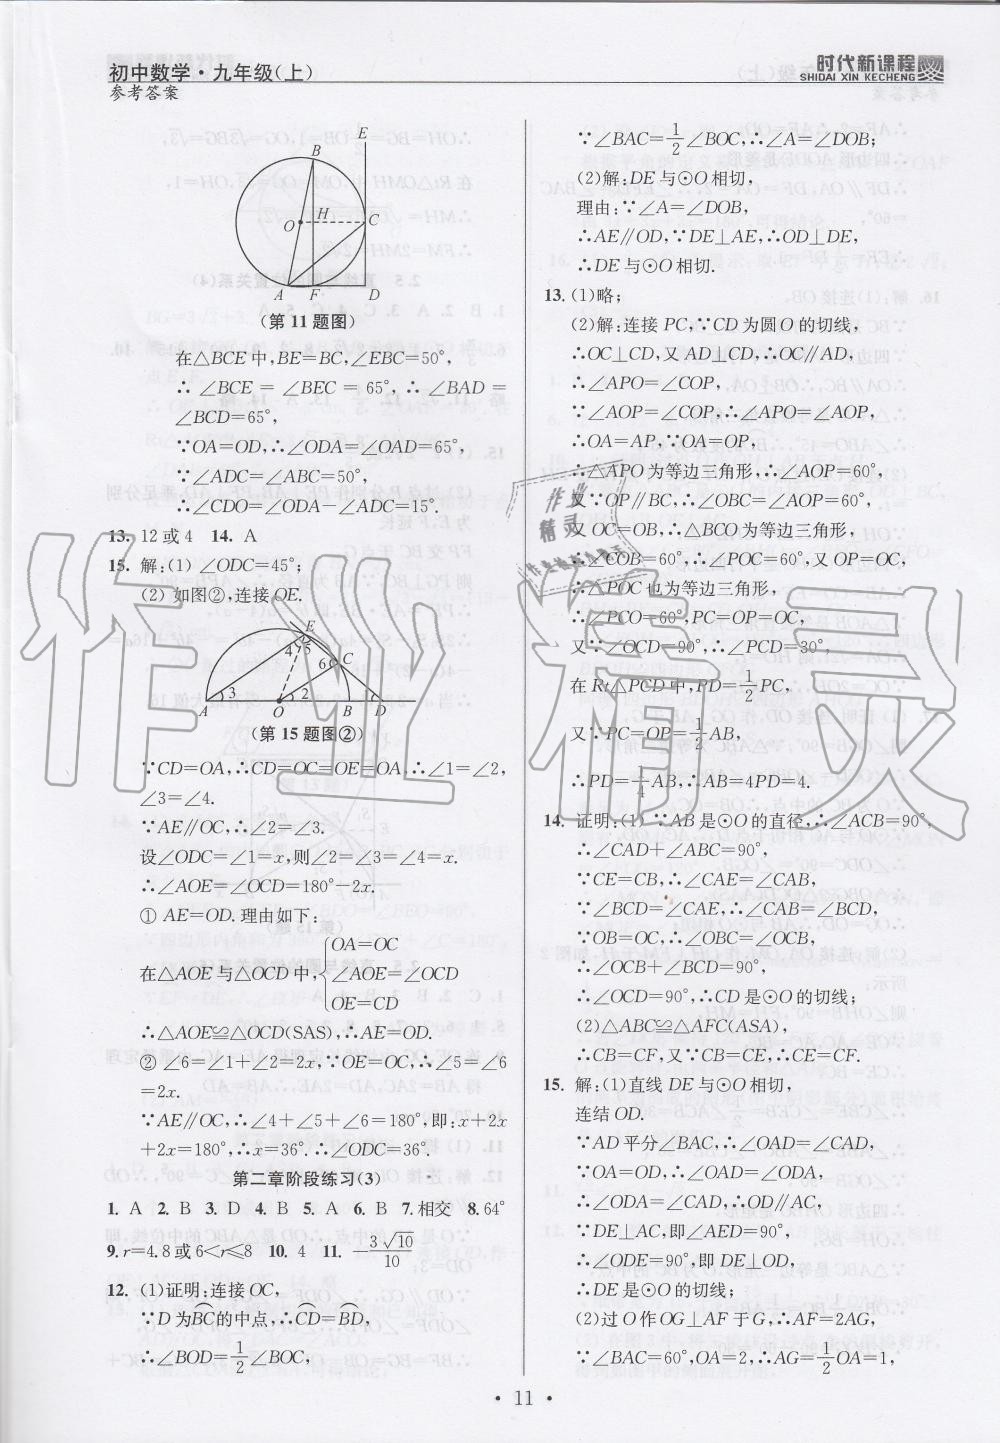 初中数学·九年级(上)
参考答案
时代新课程
SHIDAI XIN KECHENG
E
B
O
H
C
A
F
D
(第11题图)
在△BCE中,BE=BC,∠EBC=50°,
∴∠BCE=∠BEC=65°,∴∠BAD=
∠BCD=65°,
∵OA=OD,∴∠ODA=∠OAD=65°,
∵∠ADC=∠ABC=50°,
∴∠CDO=∠ODA-∠ADC=15°.
13. 12或4 14. A
15. 解:(1) ∠ODC=45°;
(2) 如图②,连接OE.
E
4 5
6 C
3
2
1
A O B D
(第15题图②)
∵CD=OA,∴CD=OC=OE=OA,∴∠1=∠2,
∠3=∠4.
∵AE∥OC,∴∠2=∠3.
设∠ODC=∠1=x,则∠2=∠3=∠4=x.
∴∠AOE=∠OCD=180°-2x.
① AE=OD.理由如下:
在△AOE与△OCD中,{OA=OC
∠AOE=∠OCD
OE=CD
∴△AOE≌△OCD(SAS),∴AE=OD.
② ∠6=∠1+∠2=2x,∵OE=OC,∴∠5=∠6
=2x.
∵AE∥OC,∴∠4+∠5+∠6=180°,即:x+2x
+2x=180°,∴x=36°.∴∠ODC=36°.
第二章阶段练习(3)
1. A 2. B 3. D 4. B 5. A 6. B 7.相交 8.64°
9.r=4.8或6<r≤8 10. 4 11. -3√10/10
12. (1)证明:连接OC,
∵D为BC的中点,∴CD=BD,
∴∠BOD=1/2∠BOC,
∵∠BAC=1/2∠BOC,∴∠A=∠DOB;
(2)解:DE与⊙O相切,
理由:∵∠A=∠DOB,
∴AE∥OD,∵DE⊥AE,∴OD⊥DE,
∴DE与⊙O相切.
13. (1)略;
(2)解:连接PC,∵CD为圆O的切线,
∴OC⊥CD,又AD⊥CD,∴OC∥AD,
∴∠APO=∠COP,
∵∠AOP=∠COP,∴∠APO=∠AOP,
∴OA=AP,∵OA=OP,
∴△APO为等边三角形,∴∠AOP=60°,
又∵OP∥BC,∴∠OBC=∠AOP=60°,
又OC=OB,∴△BCO为等边三角形,
∴∠COB=60°,∴∠POC=60°,又OP=OC,
∴△POC也为等边三角形,
∴∠PCO=60°,PC=OP=OC,
又∵∠OCD=90°,∴∠PCD=30°,
在Rt△PCD中,PD=1/2PC,
又∵PC=OP=1/2AB,
∴PD=1/4AB,∴AB=4PD=4.
14. 证明:(1) ∵AB是⊙O的直径,∴∠ACB=90°,
∴∠CAD+∠ABC=90°,
∵CE=CB,∴∠CAE=∠CAB,
∵∠BCD=∠CAE,∴∠CAB=∠BCD,
∵OB=OC,∴∠OBC=∠OCB,
∴∠OCB+∠BCD=90°,
∴∠OCD=90°,∴CD是⊙O的切线;
(2)△ABC≌△AFC(ASA),
∴CB=CF,又∵CB=CE,∴CE=CF.
15. 解:(1)直线DE与⊙O相切,
连结OD.
∵AD平分∠BAC,∴∠OAD=∠CAD,
∵OA=OD,∴∠OAD=∠ODA,
∴∠ODA=∠CAD,∴OD∥AC,
∵DE⊥AC,即∠AED=90°,
∴∠ODE=90°,即DE⊥OD,
∴DE是⊙O的切线;
(2)过O作OG⊥AF于G,∴AF=2AG,
∵∠BAC=60°,OA=2,∴AG=1/2OA=1,
作业精灵
作业
精灵
• 11 •